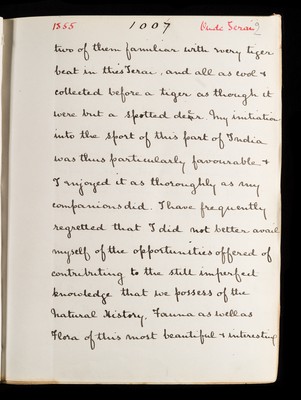 1885 1007 Oude Terai 2
two of them familiar with every tiger
beat in this Terai, and all as cool &
collected before a tiger as though it
were but a spotted deer. My initiation
into the sport of this part of India
was thus particularly favourable &
I enjoyed it as thoroughly as my
companions did. I have frequently
regretted that I did not better avail
myself of the opportunities offered of
contributing to the still imperfect
knowledge that we possess of the
Natural History, Fauna as well as
Flora of this most beautiful & interesting